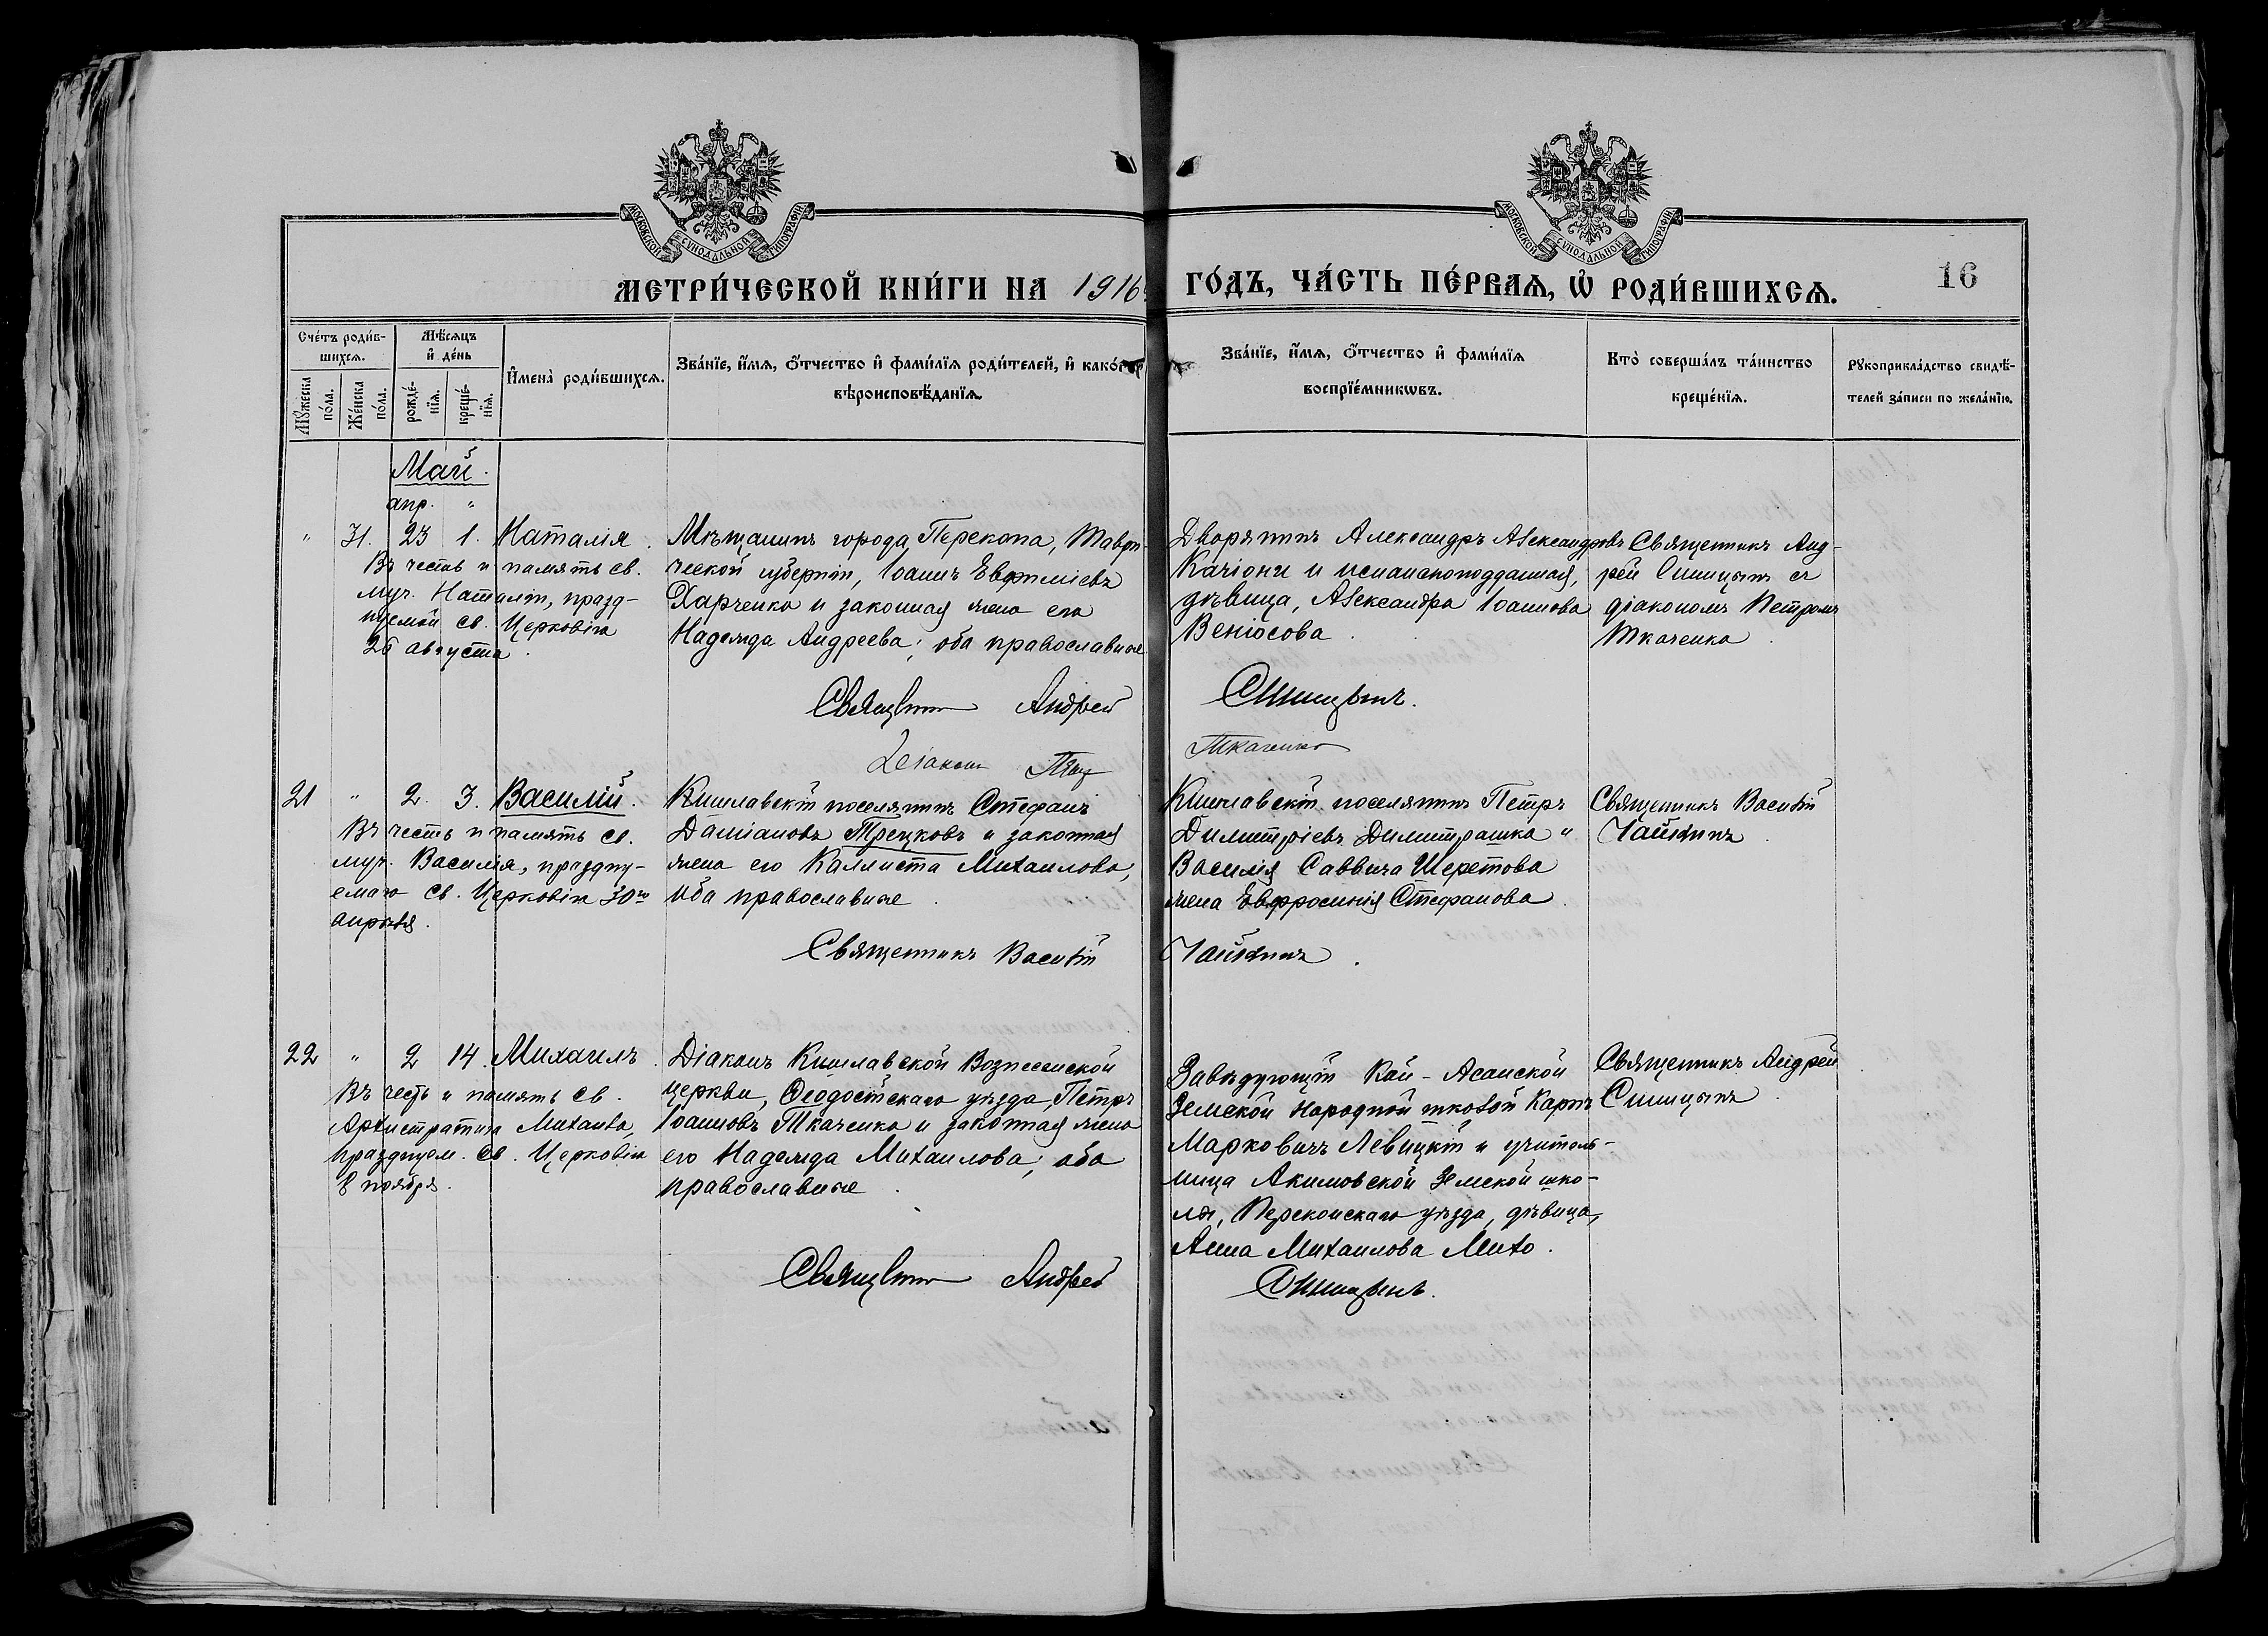 МОСКОВСКОЙ СѴНОДАЛЬНОЙ ТИПОГРАФІИ
МОСКОВСКОЙ СѴНОДАЛЬНОЙ ТИПОГРАФІИ
МЕТРИ́ЧЕСКОЙ КНИ́ГИ НА 1916
ГО́ДЪ, ЧА́СТЬ ПЕ́РВАѦ, Ѡ҆ РОДИ́ВШИХСѦ.
16
Сче́тъ роди́в-
шихсѧ.
Мѣ́сѧцъ
и҆ де́нь
Мꙋ́жеска по́ла.
Же́нска по́ла.
рожде́-нїѧ.
креще́-нїѧ.
И҆мена̀ роди́вшихсѧ.
Зва́нїе, и҆́мѧ, ѻ҆́тчество и҆ фами́лїѧ роди́телей, и҆ како́гѡ
вѣроисповѣ́данїѧ.
Зва́нїе, и҆́мѧ, ѻ҆́тчество и҆ фами́лїѧ
воспрїе́мникѡвъ.
Кто̀ соверша́лъ та́инство
креще́нїѧ.
Рꙋкоприкла́дство свидѣ́-
телей за́писи по жела́нїю.
Май.
апр. "
" 31. 23 1. Наталія.
Въ честь и память св.
муч. Наталіи, празд-
нуемой св. Церковію
26 августа.
Мѣщанинъ города Перекопа, Таври-
ческой губерніи, Іоаннъ Евфиміевъ
Харченко и законная жена его
Надежда Андреева; оба православные
Дворянинъ Александръ Александровъ
Качіони и испаноподданная,
дѣвица, Александра Іоаннова
Веніосова.
Священникъ Анд-
рей Синицынъ съ
діакономъ Петромъ
Ткаченко.
Священник Андрей
Синицынъ.
Діакон
Ткаченко
21 " 2. 3. Василій.
Въ честь и память св.
муч. Василія, праздну-
емаго св. Церковію 30го
апрѣля.
Кишлавскій поселянинъ Стефанъ
Даміановъ Трецковъ и законная
жена его Каллиста Михаилова,
оба православные.
Кишлавскій поселянинъ Петръ
Димитріевъ Димитрашка и
Василія Саввича Шеретова
жена Евфросинія Стефанова.
Священникъ Василій
Чайкинъ.
Священникъ Василій
Чайкинъ.
22 " 2 14. Михаилъ.
Въ честь и память св.
Архистратига Михаила,
празднуем. св. Церковію
8 ноября.
Діаконъ Кишлавской Вознесенской
церкви, Ѳеодосійскаго уѣзда, Петръ
Іоанновъ Ткаченко и законная жена
его Надежда Михаилова; оба
православные.
Завѣдующій Кой-Асанской
Земской народной школой Карпъ
Марковичъ Левицкій и учитель-
ница Акимовской Земской шко-
лы, Перекопскаго уѣзда, дѣвица,
Анна Михаилова Михо.
Священникъ Андрей
Синицынъ.
Священник Андрей
Синицынъ.